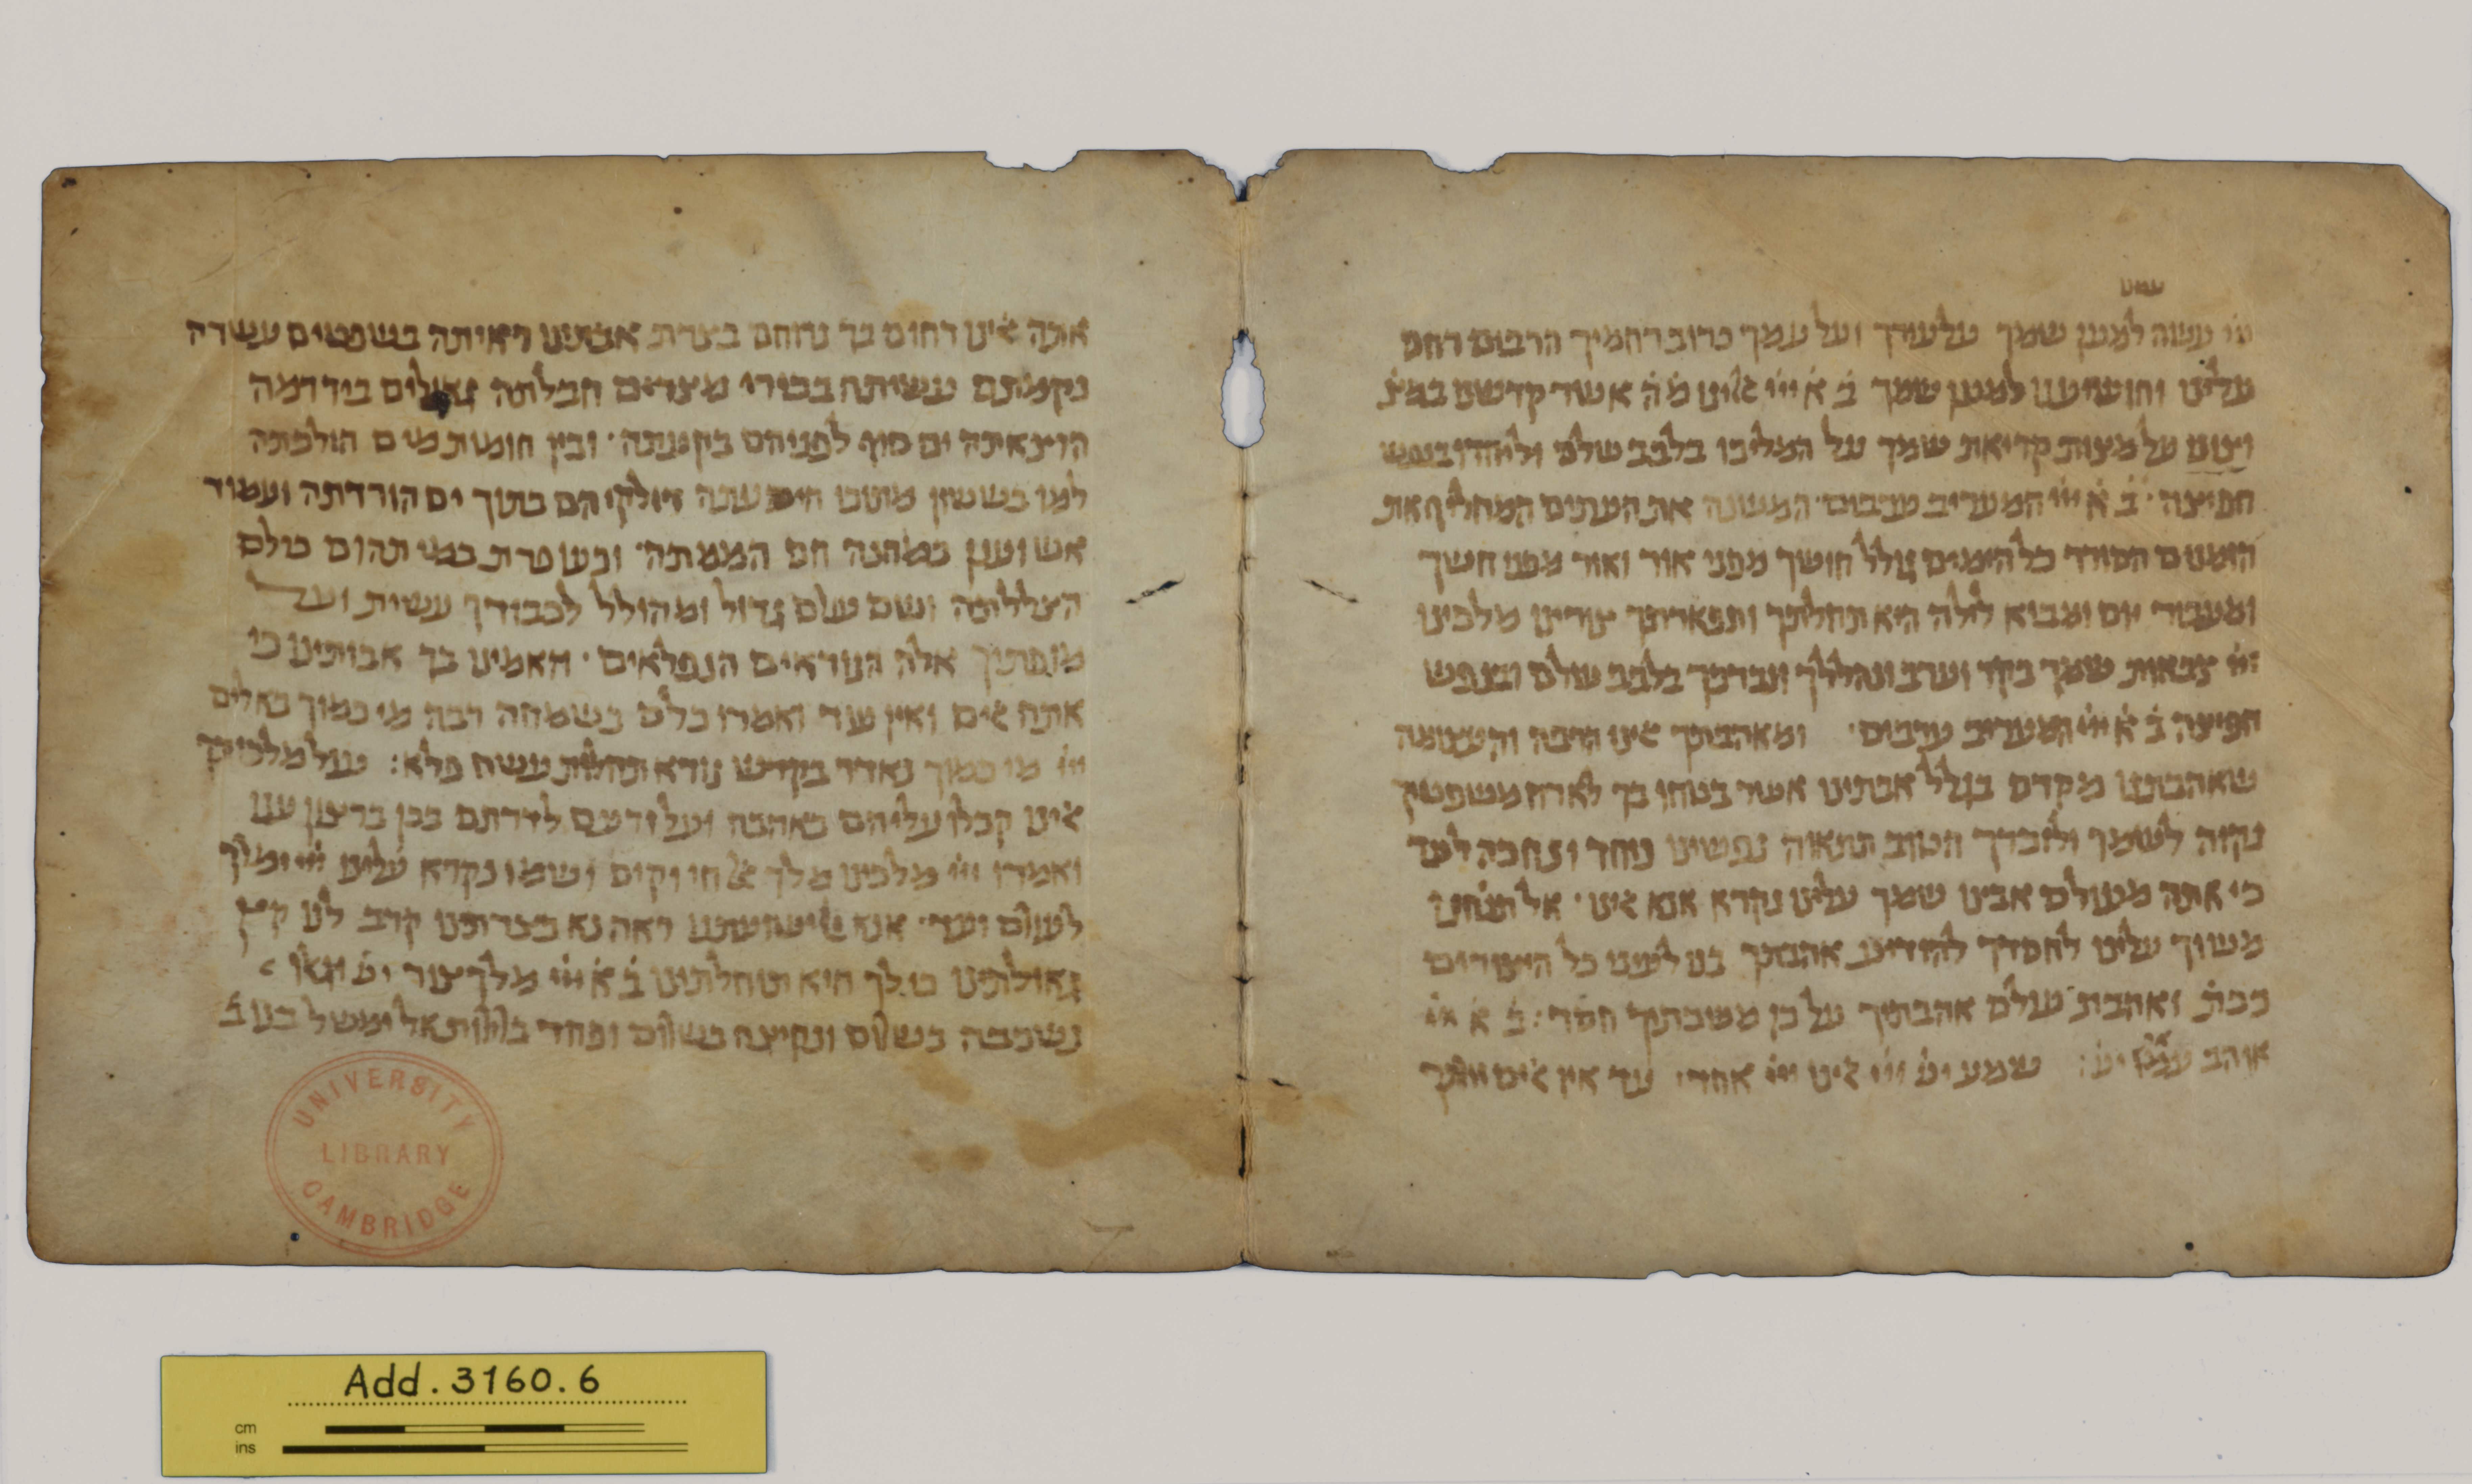 עמנו
ייי עשה למען שמך על עירך ועל עמך כרוב רחמיך הרבים רחם
עלינו והושיענו למען שמך ב א ייי אלינו מ ה אשר קדשנו במצ
וצונו על מצות קריאת שמך על המליכו בלבב שלם וליחדו בנפש
חפיצה ב א ייי המעריב ערבים המשנה את העתים המחליף את
הזמנים הסודר כל הימים גולל חושך מפני אור ואור מפני חשך
ומעביר יום ומביא לילה היא תהלתך ותפארתך צורינו מלכינו
ייי צבאות שמך בקר וערב ונהללך ונברכך בלבב שלם ובנפש
חפיצה ב א ייי המעריב ערבים ומאהבתך אינו הרבה והעצומה
שאהבתנו מקדם בגלל אבתינו אשר בטחו בך לארח משפטיך
נקוה לשמך ולזכרך הטוב תתאוה נפשינו נוחד ונחכה לעד
כי אתה מעולם אבינו שמך עלינו נקרא אנא אינו אל תזנחינו
משוך עלינו לחסדך להודיע אהבתך בנו לעיני כל היצורים
ככת ואהבת עולם אהבתיך על כן משכתיך חסד ב א ייי
אוהב עמו יש שמע יש ייי אינו ייי אחד עד אין
אתה אינו רחום כך נרוחם בצרת אבותינו ראיתה בשפטים עשרה
נקמתם עשיתה בבכורי מצרים חבלתה גאולים ביד רמה
הוצאיתה ים סוף לפניהם בקעתה ובין חומות מים הולכתה
למו בששון מתוכו דולקיהם בתוך ים הורדתה ועמוד
אש וענן במחנה חם הממתה וכעופרת במי תהום כולם
הצללתה ושם עולם גדול ומהולל לכבודך עשית ועל
מופתיך אלה הנוראים הנפלאים האמינו בך אבותינו כי
אתה אים ואין עוד ואמרו כלם בשמחה רבה מי כמוך באלים
ייי מי כמוך נאדר בקדש נורא תהלות עשה פלא עול מלכותך
אינו קבלו עליהם באהבה ועל זרעם לדרתם בכן ברצון ענו
ואמרו ייי מלכינו מלך אל חי וקים ושמו נקרא עלינו ייי ימלך
לעולם ועד אנא ראה נא בצרתינו קרב לנו קיץ
גאולתינו כי לך היא תוחלתינו ב א ייי מלך צור יש וגאלו
נשכבה בשלום ונקיצה בשלום ופחד בלילות אל ימשל בנו ב
UNIVERSITY LIBRARY CAMBRIDGE
Add.3160.6
cm
ins